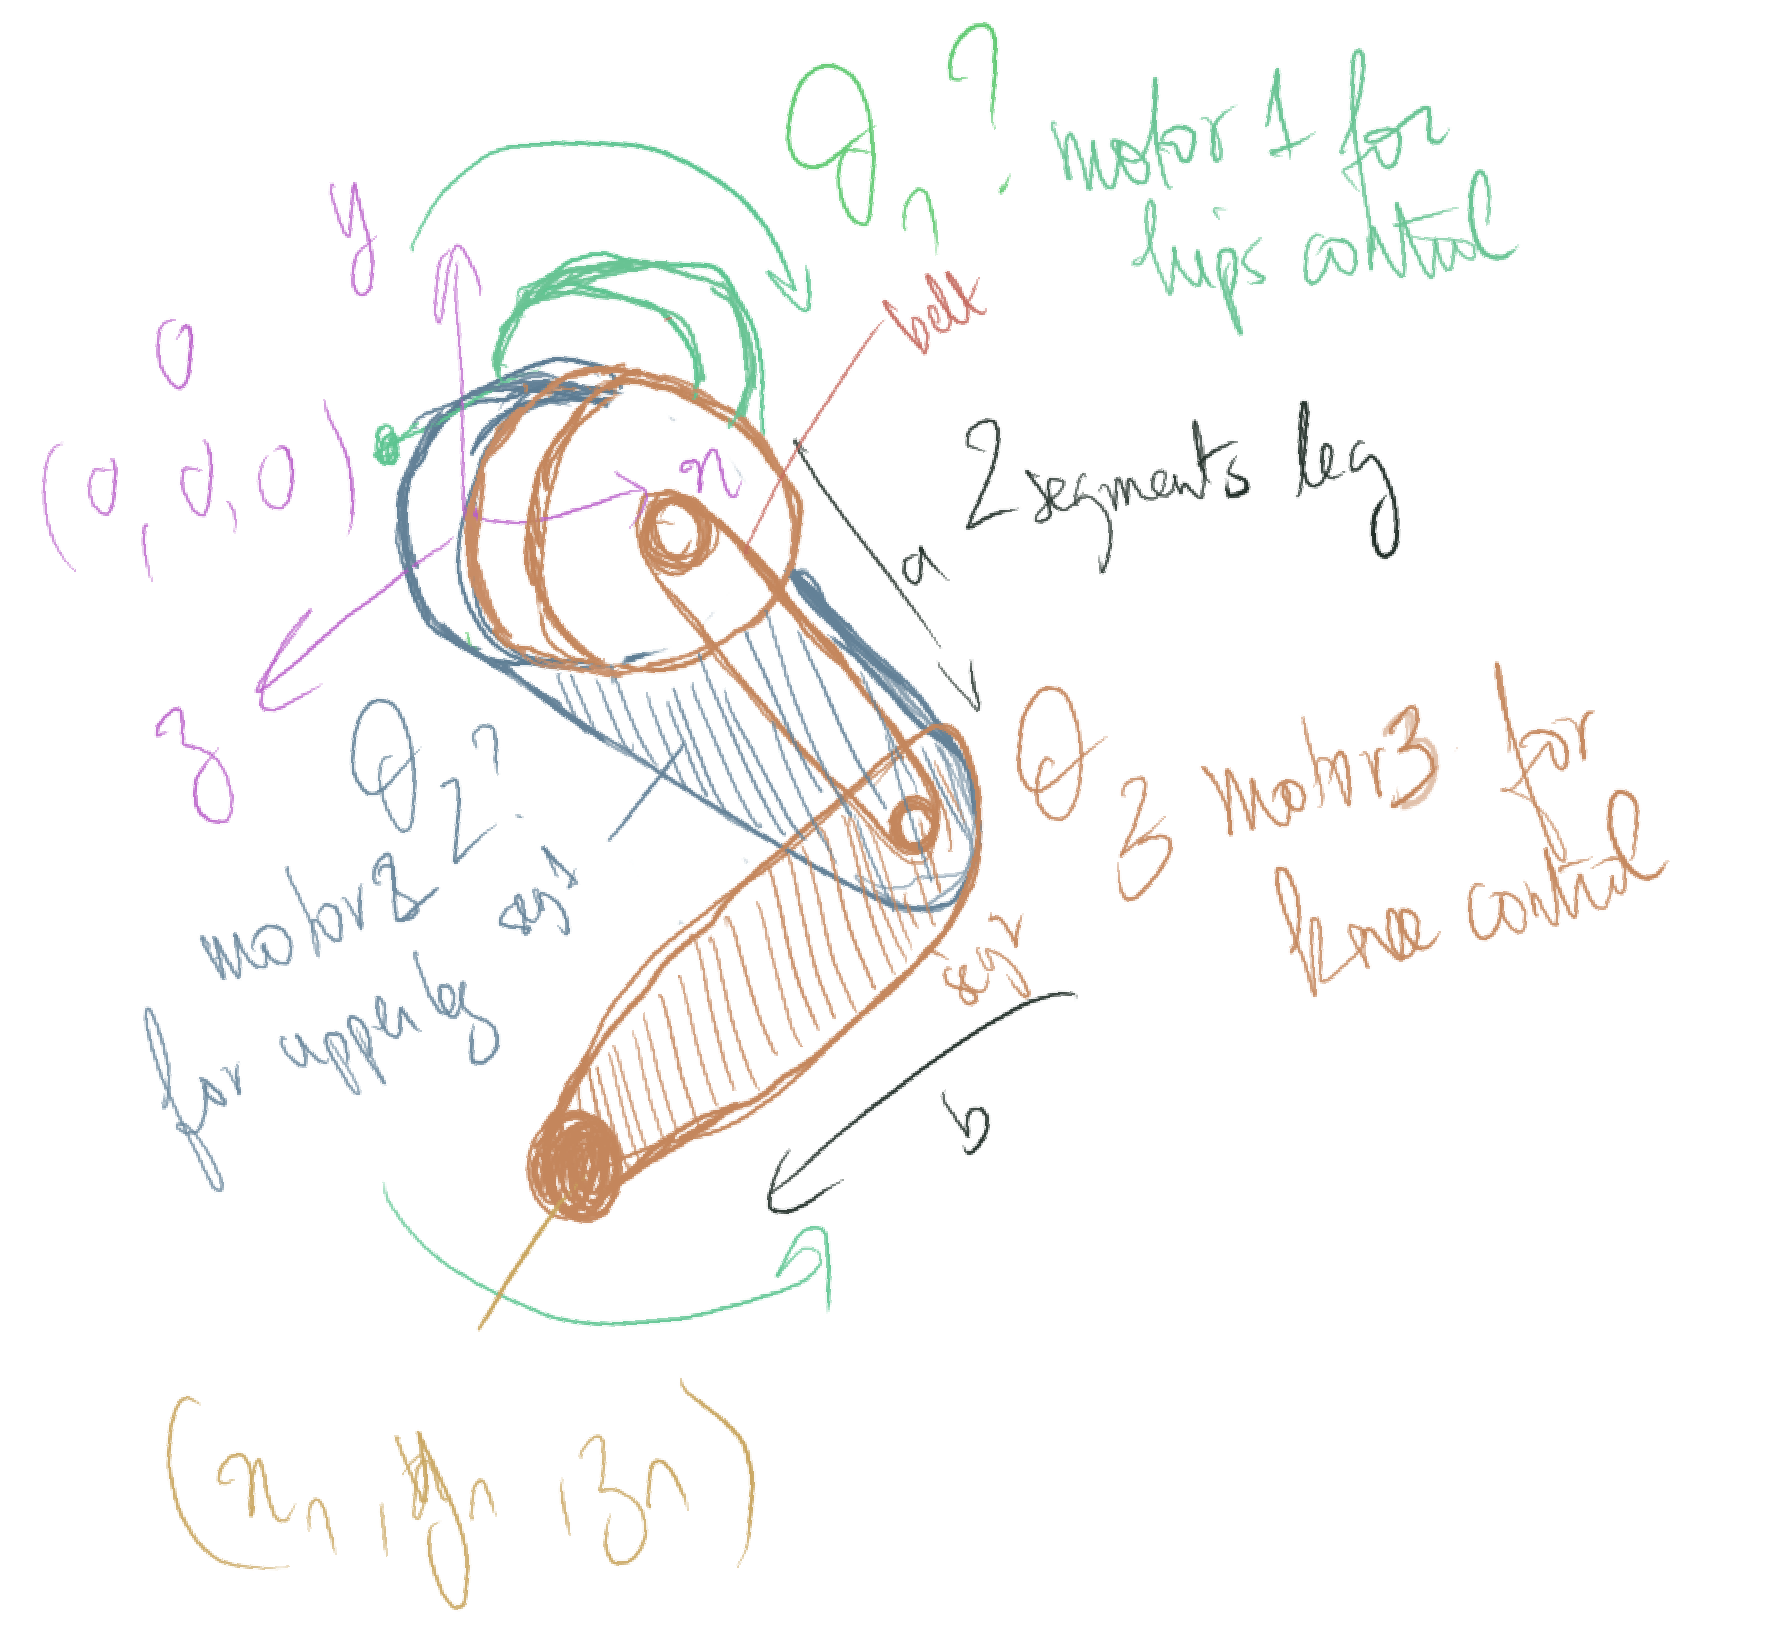 θ1 ?
motor 1 for
hips control
y
0
(0, 0, 0)
x
z
belt
2 segments leg
a
θ2 ?
motor 2
for upper leg
seg 1
θ3 motor 3 for
knee control
seg 2
b
(x1, y1, z1)